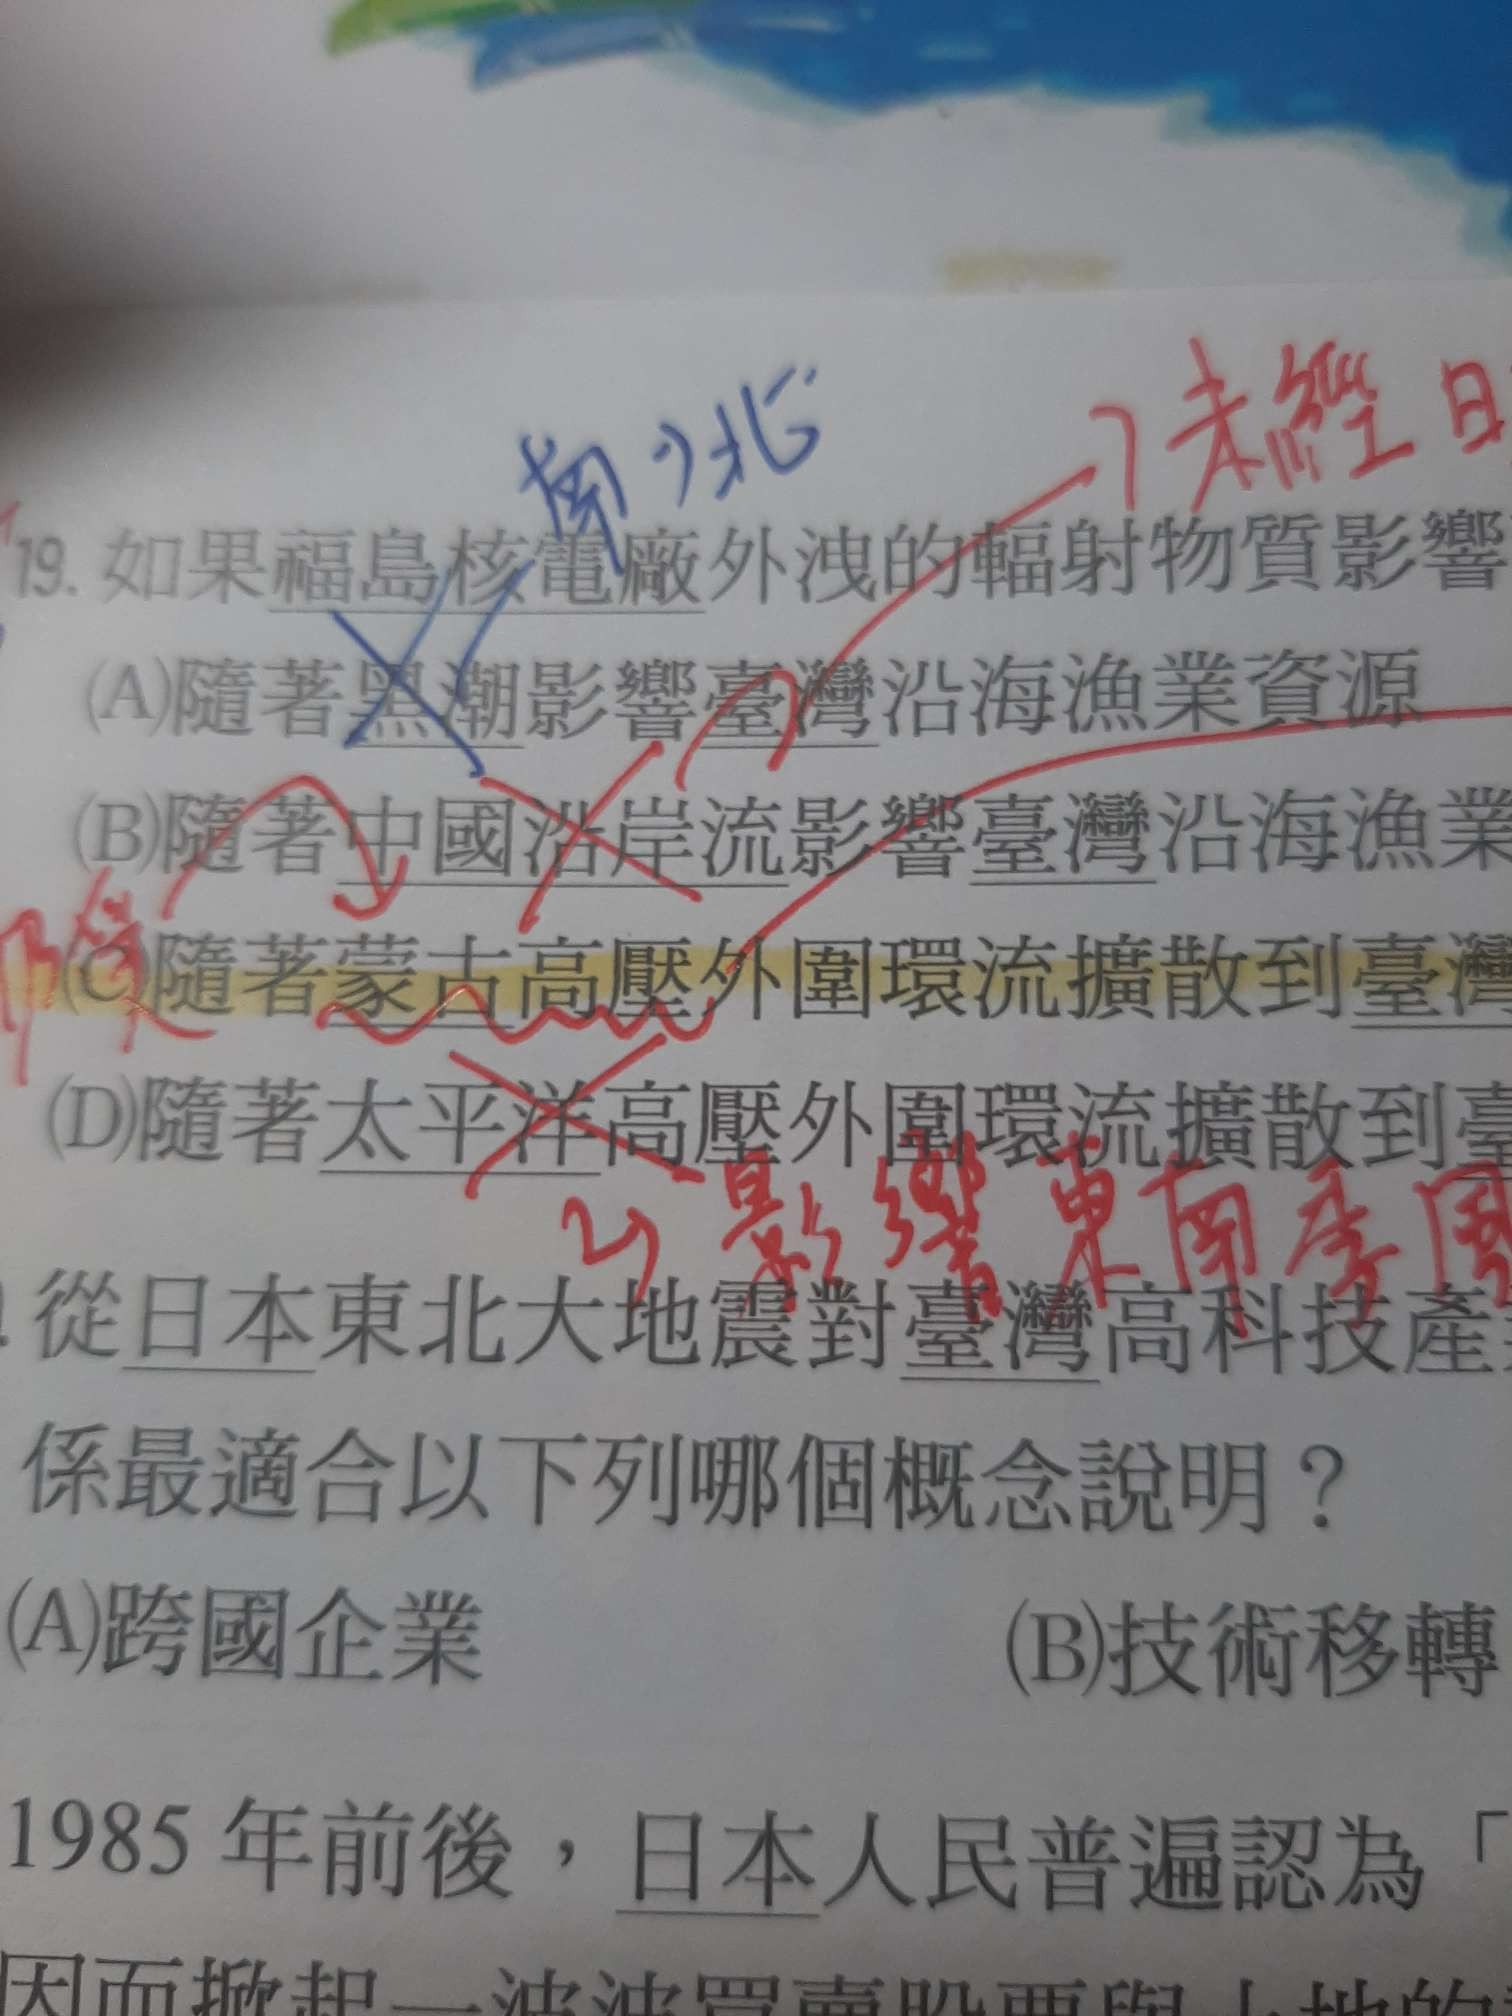 南→北
未經日
19. 如果福島核電廠外洩的輻射物質影響
(A)隨著黑潮影響臺灣沿海漁業資源
(B)隨著中國沿岸流影響臺灣沿海漁業
(C)隨著蒙古高壓外圍環流擴散到臺灣
(D)隨著太平洋高壓外圍環流擴散到臺
影響東南季風
從日本東北大地震對臺灣高科技產
係最適合以下列哪個概念說明？
(A)跨國企業
(B)技術移轉
1985 年前後，日本人民普遍認為「
因而掀起一波波買賣股票與土地的